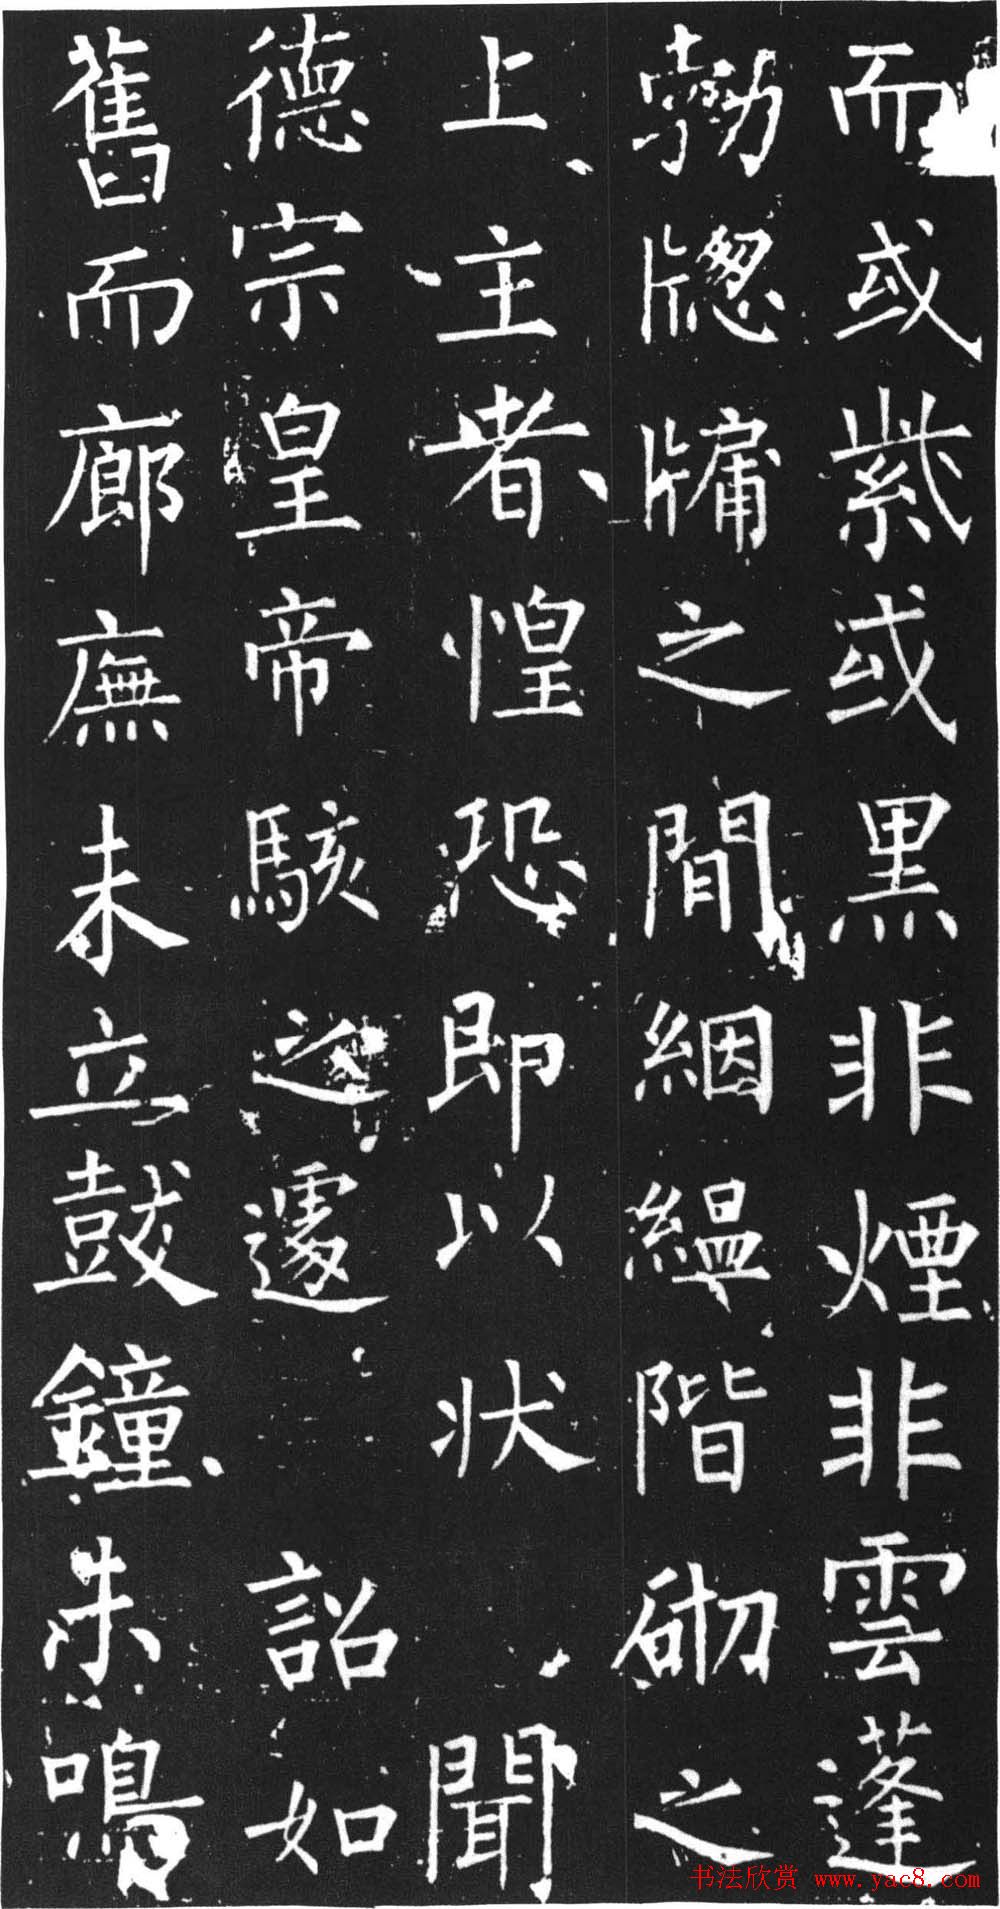 而或紫或黑非煙非雲蓬
勃牎牖之間絪縕階砌之
上主者惶恐即以状 聞
德宗皇帝駭之遽 詔如
舊而廊廡未立鼓鐘未鳴
书法欣赏 www.yac8.com